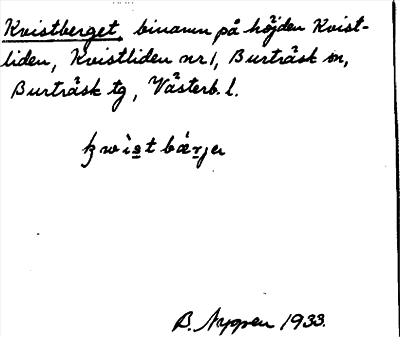 Kvistberget, binamn på höjden Kvist-
liden, Kvistliden nr 1, Burträsk sn,
Burträsk tg, Västerb. l.
B. Nygren 1933.